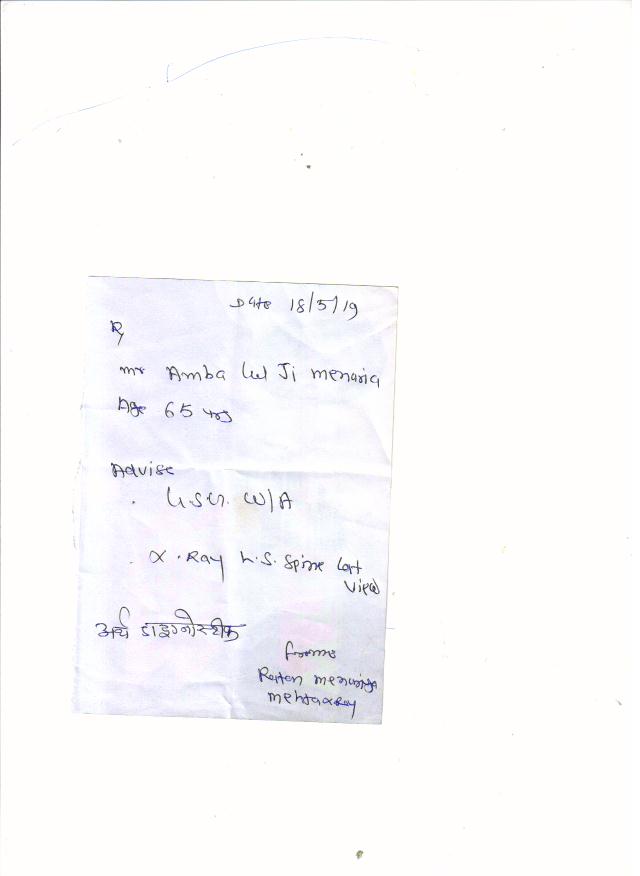 Date 18/5/19
Rx
mr Amba Lal Ji menaria
Age 65 yrs
Advise
. U.S.G. W/A
. X.Ray L.S. Spine Lat
View
अर्थ डाइग्नोस्टीक
from
Ratan menariya
mehta x Ray